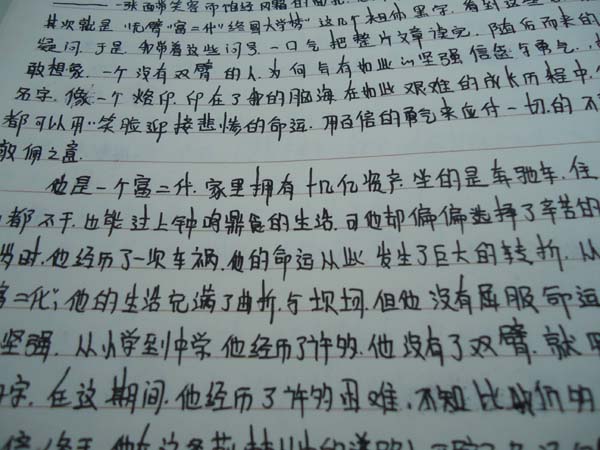 一张西
其次就是"无臂"富二代"终圆大学梦"这几个粗体黑字.看到这些
疑问.于是.我带着这些问号一口气把整片文章读完.随后而来的
敢想象.一个没有双臂的人.为何有如此的坚强信念与勇气.
名字.像一个烙印.印在了我的脑海.在如此艰难的成长历程中.
都可以用"笑脸迎接悲惨的命运.用百倍的勇气来应付一切的不
敬佩之意.
他是一个富二代.家里拥有十几亿资产.坐的是车驰车.住
都不干.也能过上钟鸣鼎食的生活.可他却偏偏选择了辛苦的
岁时.他经历了一次车祸.他的命运从此发生了巨大的转折.从
富二代".他的生活充满了曲折与坝坷.但他没有屈服命运
坚强.从小学到中学他经历了许多.他没有了双臂.就用
字.在这期间.他经历了许多困难.不知比我们的